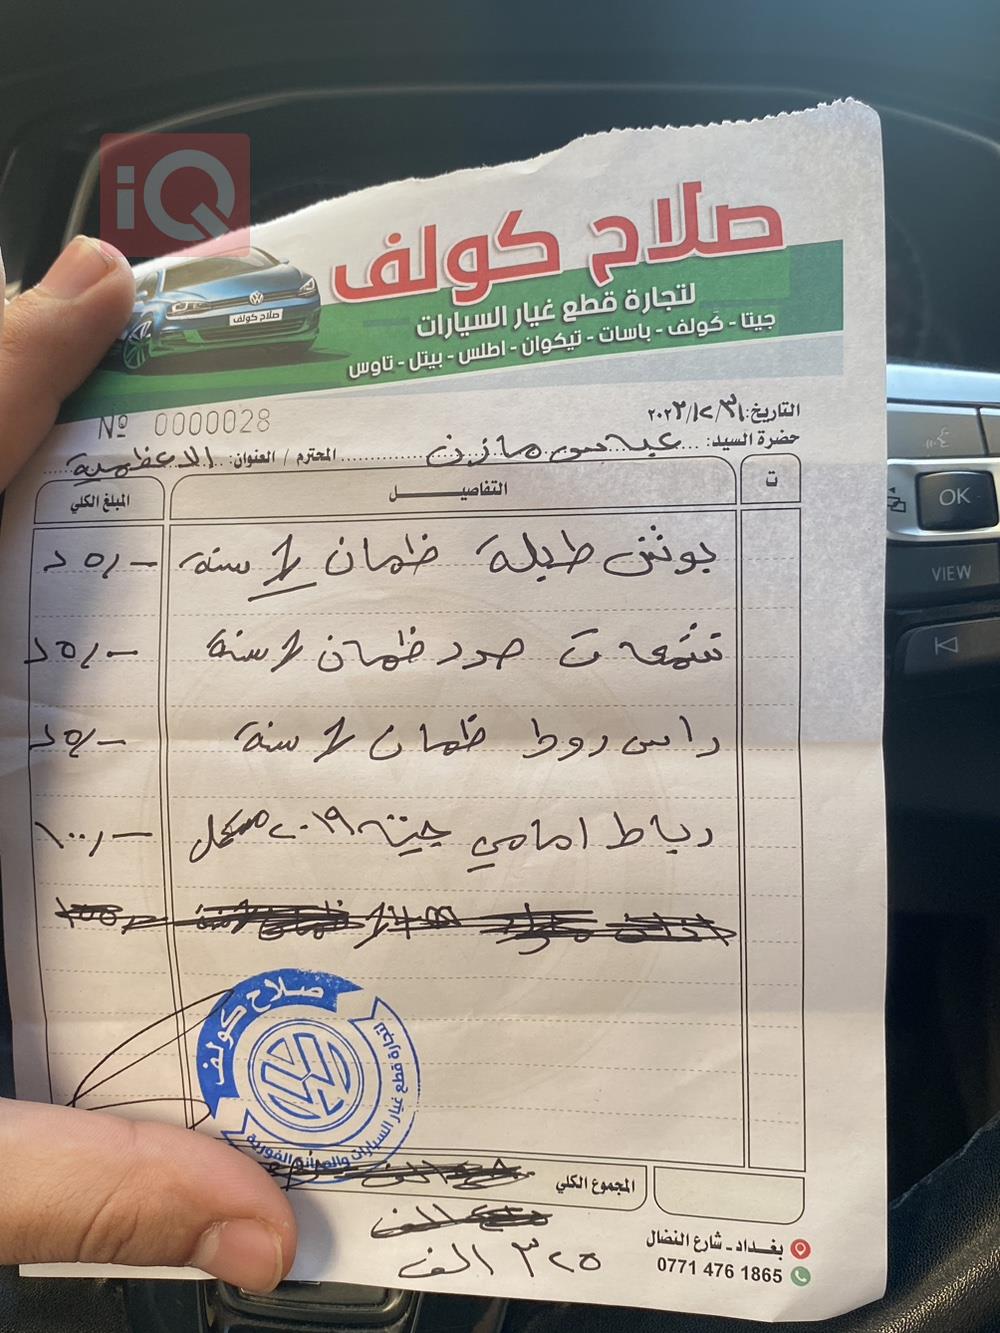 iQ
صلاح كولف
لتجارة قطع غيار السيارات
جيتا - كولف - باسات - تيكوان - اطلس - بيتل - تاوس
صلاح كولف
Nº 0000028
التاريخ: ٢٠٢٣/١٢/٣١
حضرة السيد: مازن المحترم / العنوان: الاعظمية
ت التفاصيل المبلغ الكلي
طبلة ظمان ١ سنة
صدر ظمان ١ سنة
راس روط ظمان ١ سنة
رباط امامي جيتة ٢٠١٩ مكمل ١٠٠/-
صلاح كولف
لتجارة قطع غيار السيارات والصيانة الفورية
المجموع الكلي
٣٢٥ الف
بغداد - شارع النضال
0771 476 1865
OK
VIEW